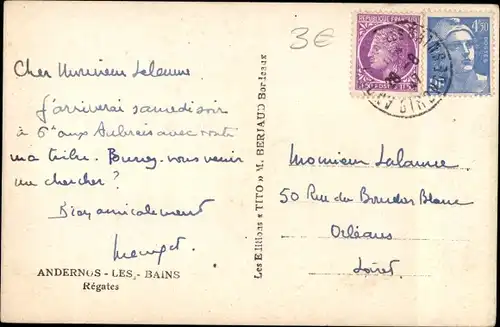 3€
Cher Monsieur Lalanne
J'arriverai samedi soir
à 6h aux Aubrais avec toute
ma tribu. Pouvez-vous venir
me chercher?
Bien amicalement
ANDERNOS-LES-BAINS
Régates
Les Editions « TITO » M. BERJAUD Bordeaux
REPUBLIQUE FRANÇAISE
POSTES
4F50
Monsieur Lalanne
50 Rue du Bourdon Blanc
Orléans
Loiret